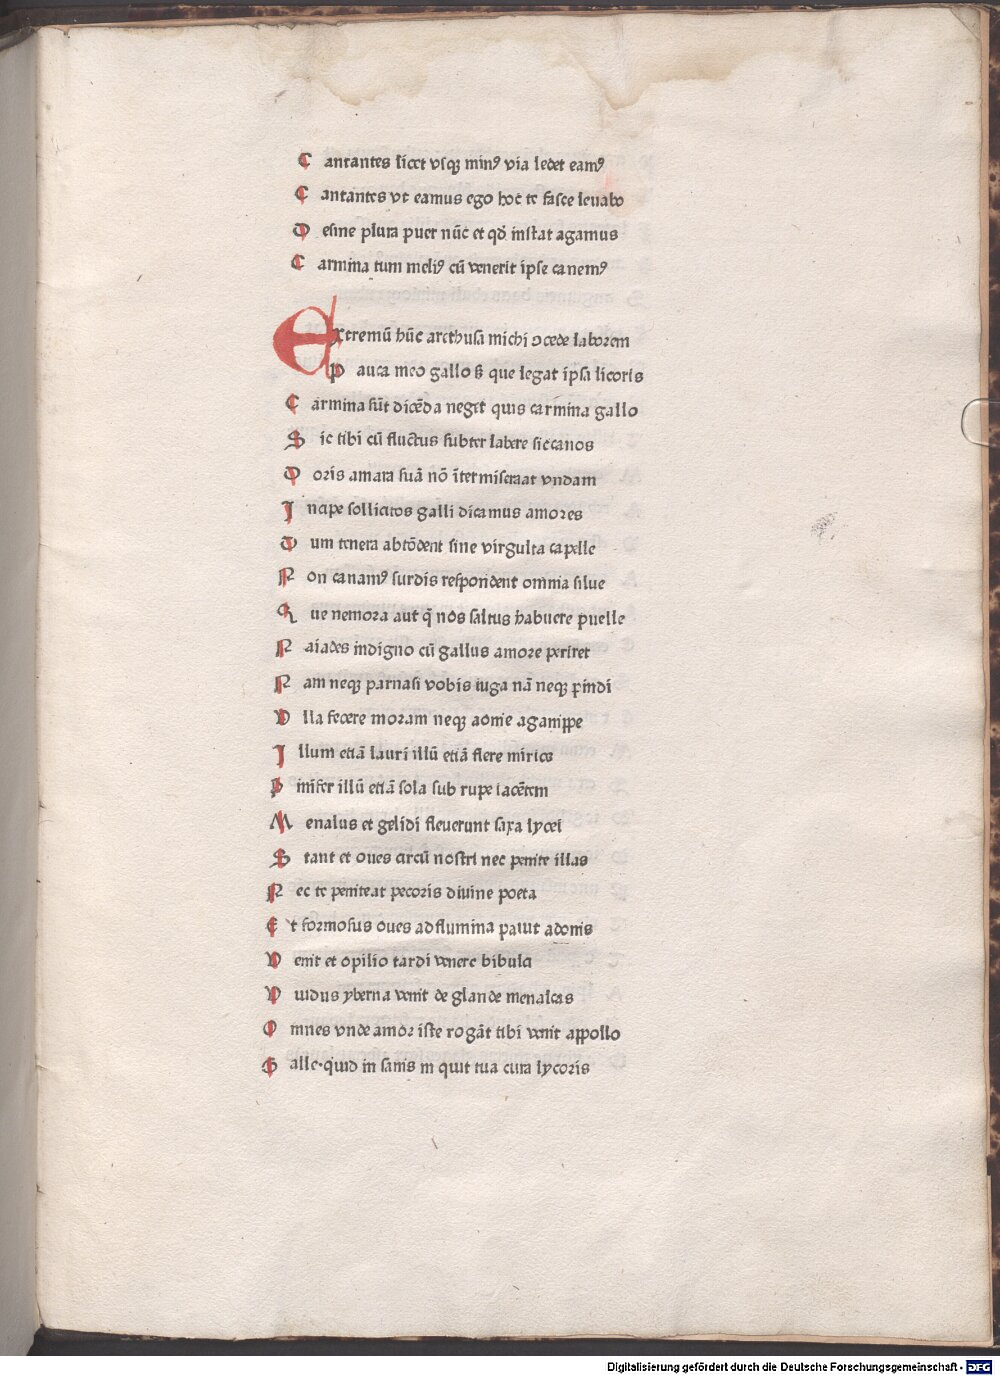 Cantantes licet vsqꝫ minꝰ via ledet eamꝰ
Cantantes vt eamus ego hoc te fasce leuabo
Desine plura puer nūc et qd̄ instat agamus
Carmina tum meliꝰ cū venerit ipse canemꝰ
Extremū hūc arethusa michi ꝯcede laborem
Pauca meo gallo sꝫ que legat ipsa licoris
Carmina sūt dicēda neget quis carmina gallo
Sic tibi cū fluctus subter labere siccanos
Doris amara suā nō ītermisceaat vndam
Incipe sollicitos galli dicamus amores
Dum tenera abtōdent sine virgulta capelle
Non canamꝰ surdis respondent omnia silue
Que nemora aut q̄ nos saltus habuere puelle
Naiades indigno cū gallus amore periret
Nam neqꝫ parnasi vobis iuga nā neqꝫ pindi
Vlla fecere moram neqꝫ aonie aganippe
Illum etiā lauri illū etiā flere mirice
Pinifer illū etiā sola sub rupe iacētem
Menalus et gelidi fleuerunt saxa lycei
Stant et oues circū nostri nec penite illas
Nec te peniteat pecoris diuine poeta
Et formosus oues ad flumina pauit adonis
Venit et opilio tardi venere bibulci
Vuidus yberna venit de glande menalcas
Omnes vnde amor iste rogāt tibi venit appollo
Galle·quid in sanis in quit tua cura lycoris
Digitalisierung gefördert durch die Deutsche Forschungsgemeinschaft - DFG